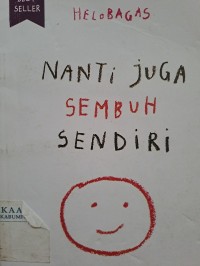 SELLER
HELOBAGAS
NANTI JUGA
SEMBUH
SENDIRI
KAA